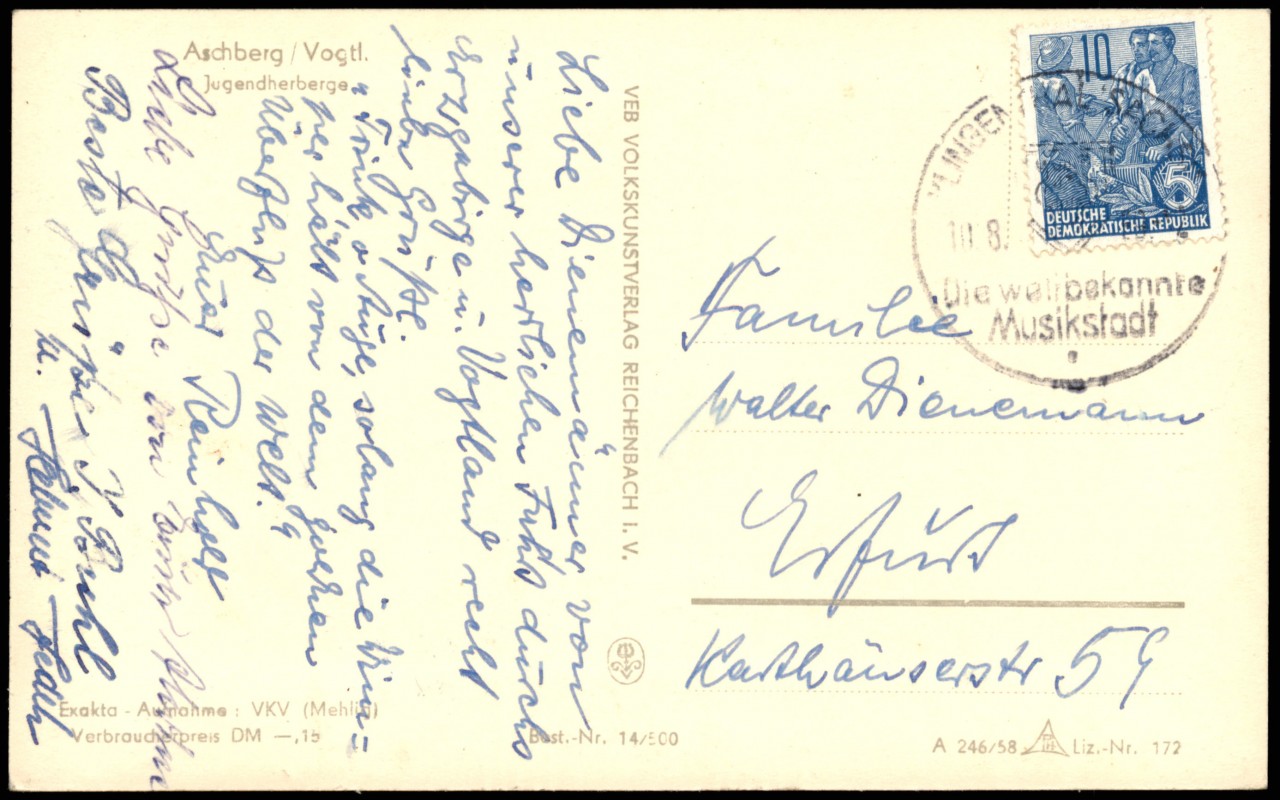 Aschberg / Vogtl.
Jugendherberge
Liebe Dienemänner von
unserer herrlichen Fahrt durchs
Erzgebirge u. Vogtland recht
liebe Grüße.
"Trink o Auge, solang die Wim=
per hält von dem goldnen
Überfluß der Welt."
Euer Reinhold
Liebe Grüße von
Beste Grüße
u. Helmut
VEB VOLKSKUNSTVERLAG REICHENBACH I. V.
10
5
DEUTSCHE
DEMOKRATISCHE REPUBLIK
KLINGENTHAL
10.8.
Die weltbekannte
Musikstadt
Familie
Walter Dienemann
Erfurt
Karthäuserstr 59
Exakta - Aufnahme : VKV (Mehlig)
Verbraucherpreis DM —,15
Best.-Nr. 14/500
A 246/58
Liz.-Nr. 172